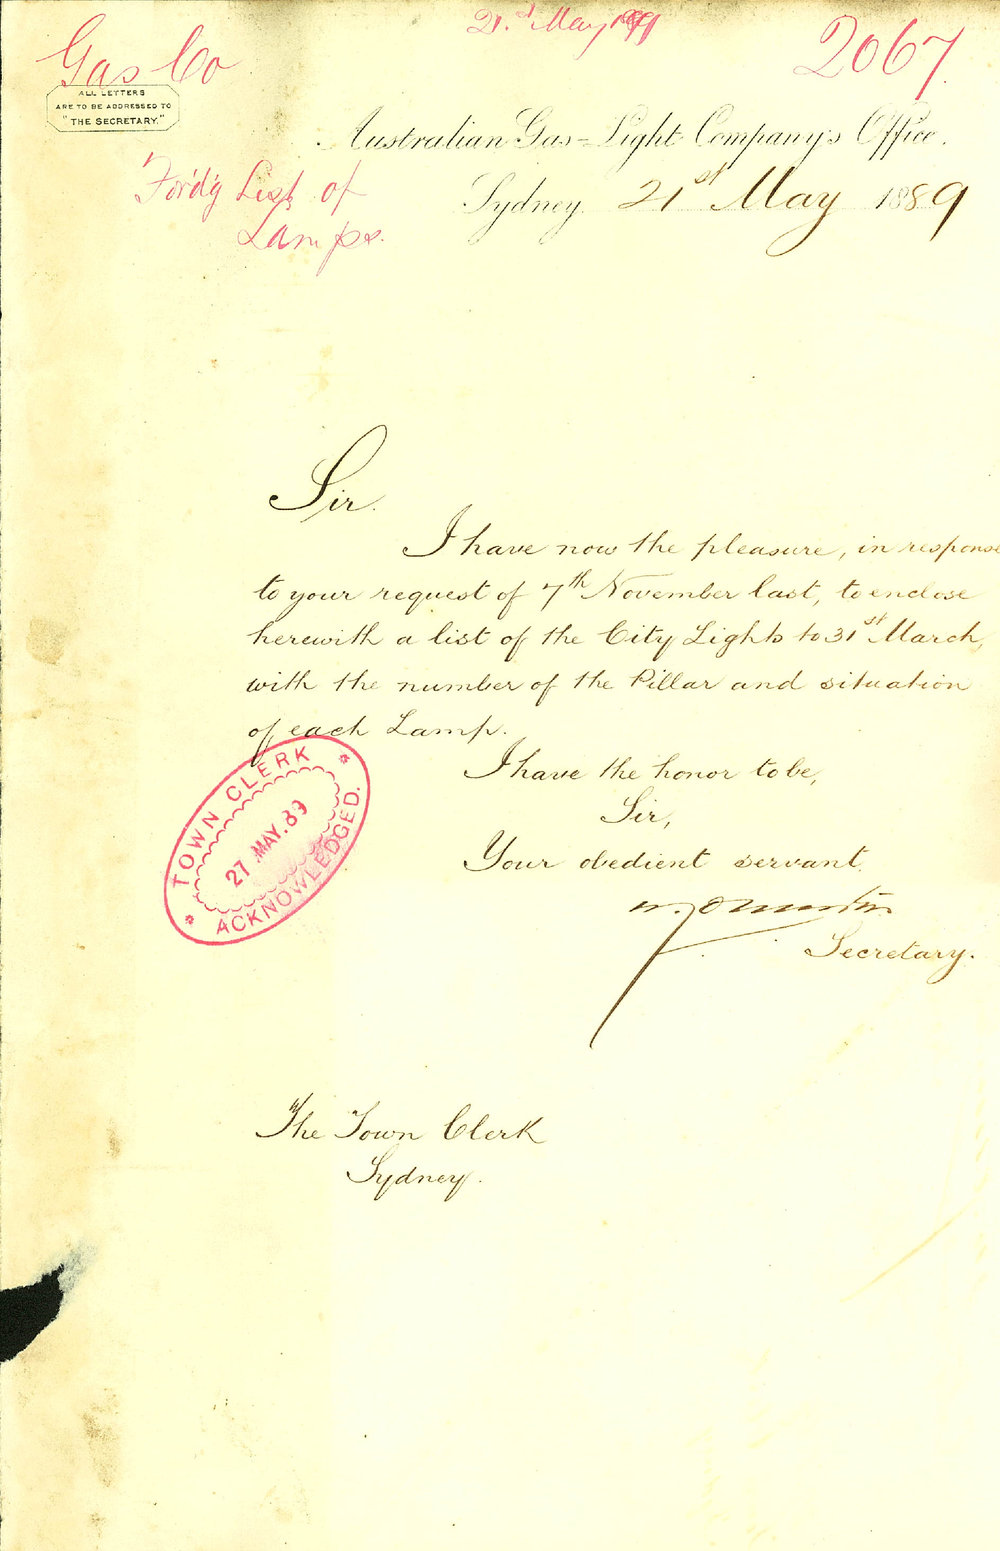 Gas Co
21st May
2067
ALL LETTERS
ARE TO BE ADDRESSED TO
"THE SECRETARY."
Australian Gas-Light Company's Office.
Sydney. 21st May 1889
For'd'g List of
Lamps.
Sir.
I have now the pleasure, in response
to your request of 7th November last, to enclose
herewith a list of the City Lights to 31st March,
with the number of the Pillar and situation
of each Lamp.
I have the honor to be,
Sir,
Your obedient servant.
Secretary.
TOWN CLERK
27 MAY. 89
ACKNOWLEDGED.
The Town Clerk
Sydney.